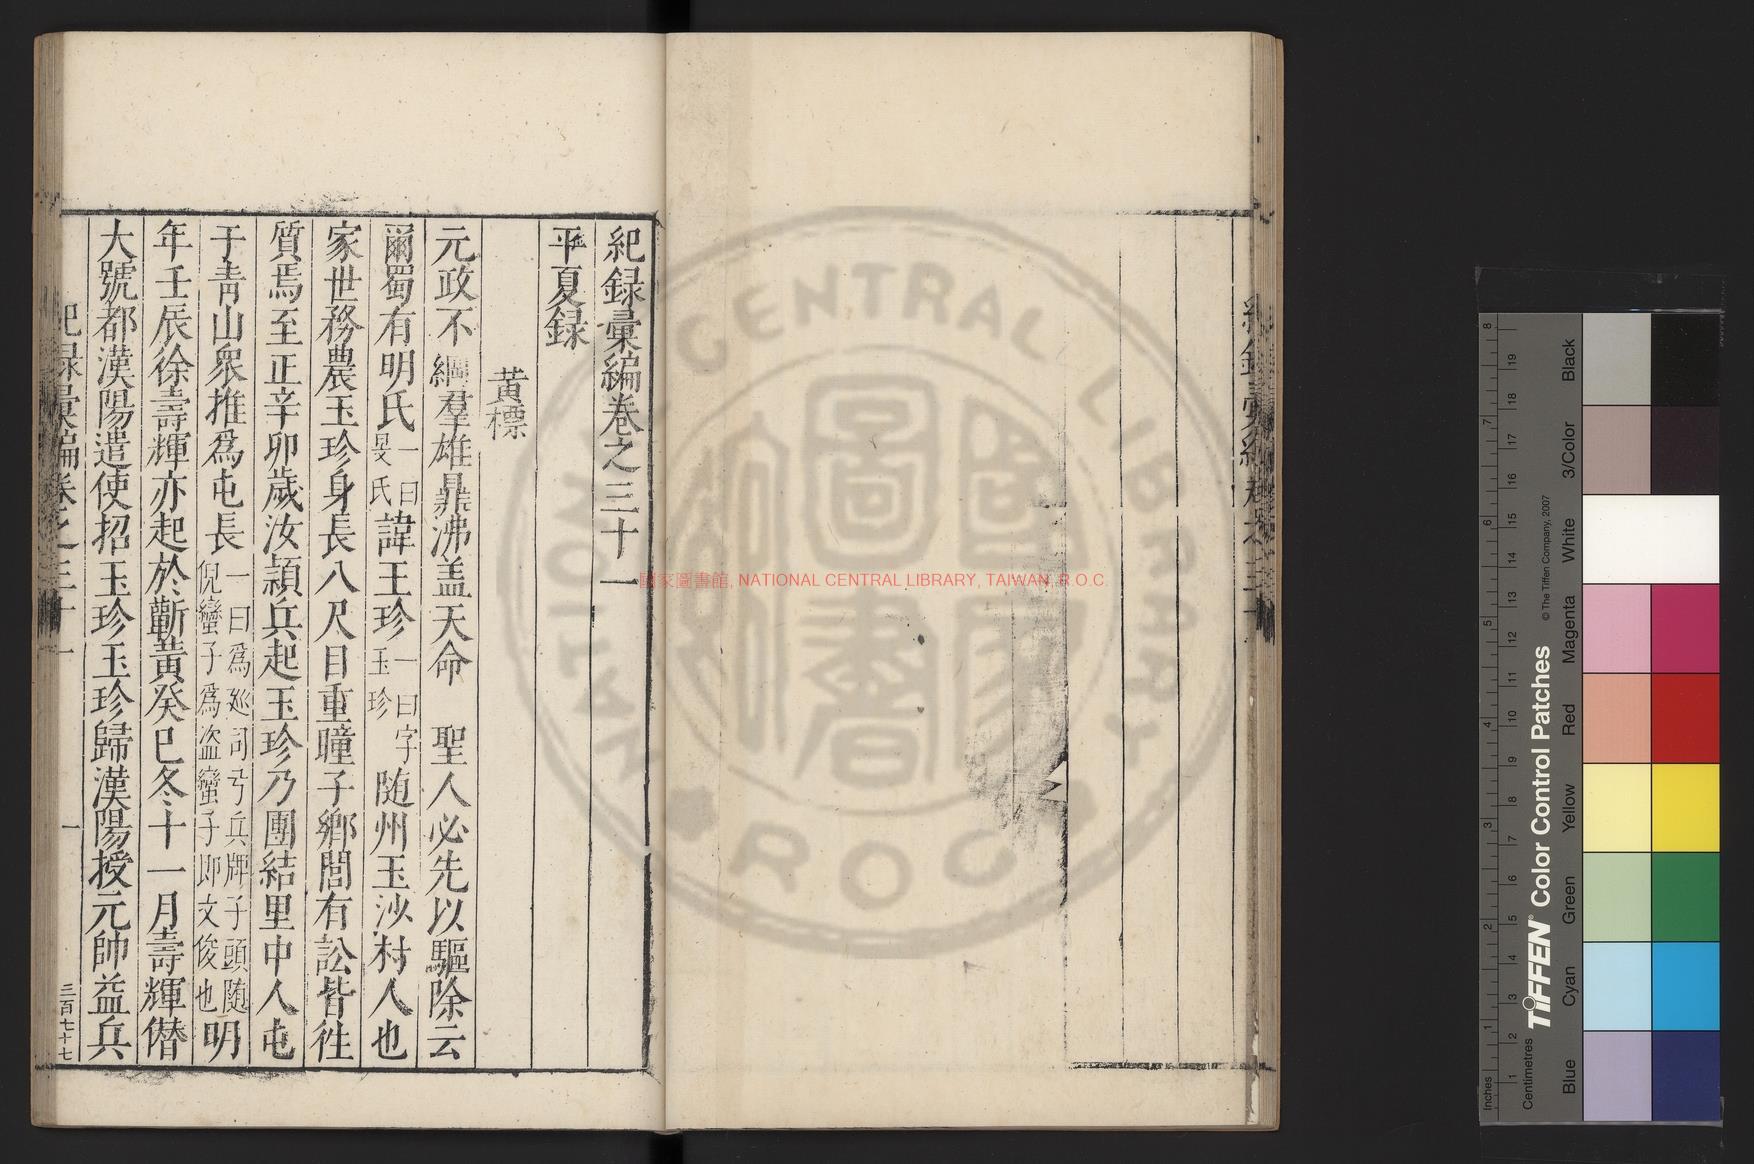 紀録彙編卷之三十一
平夏録
黃標
元政不綱羣雄鼎沸盖天命　聖人必先以驅除云
爾蜀有明氏一曰旻氏諱玉珍一曰字玉珍随州玉沙村人也
家世務農玉珍身長八尺目重瞳子鄉閭有訟皆徃
質焉至正辛卯歲汝潁兵起玉珍乃團結里中人屯
于青山衆推爲屯長一曰爲廵司弓兵牌子頭随倪蠻子爲盗蠻子即文俊也明
年壬辰徐壽輝亦起於蘄黃癸巳冬十一月壽輝僣
大號都漢陽遣使招玉珍玉珍歸漢陽授元帥益兵
紀録彙編卷之三十一
一
三百七十七
國家圖書館, NATIONAL CENTRAL LIBRARY, TAIWAN, R.O.C.
NATIONAL CENTRAL LIBRARY
R.O.C
國家圖書館
Inches
Centimetres
TIFFEN® Color Control Patches
© The Tiffen Company, 2007
Blue
Cyan
Green
Yellow
Red
Magenta
White
3/Color
Black